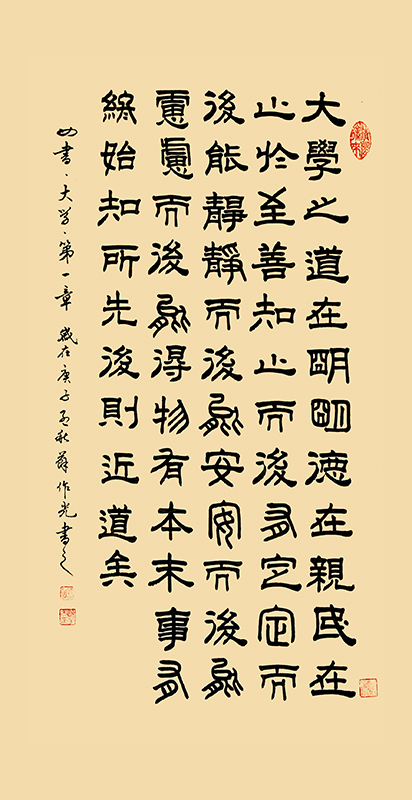 大學之道在明明德在親民在
止於至善知止而後有定定而
後能靜靜而後能安安而後能
慮慮而後能得物有本末事有
終始知所先後則近道矣
四書·大学·第一章 歲在庚子秋作光書之